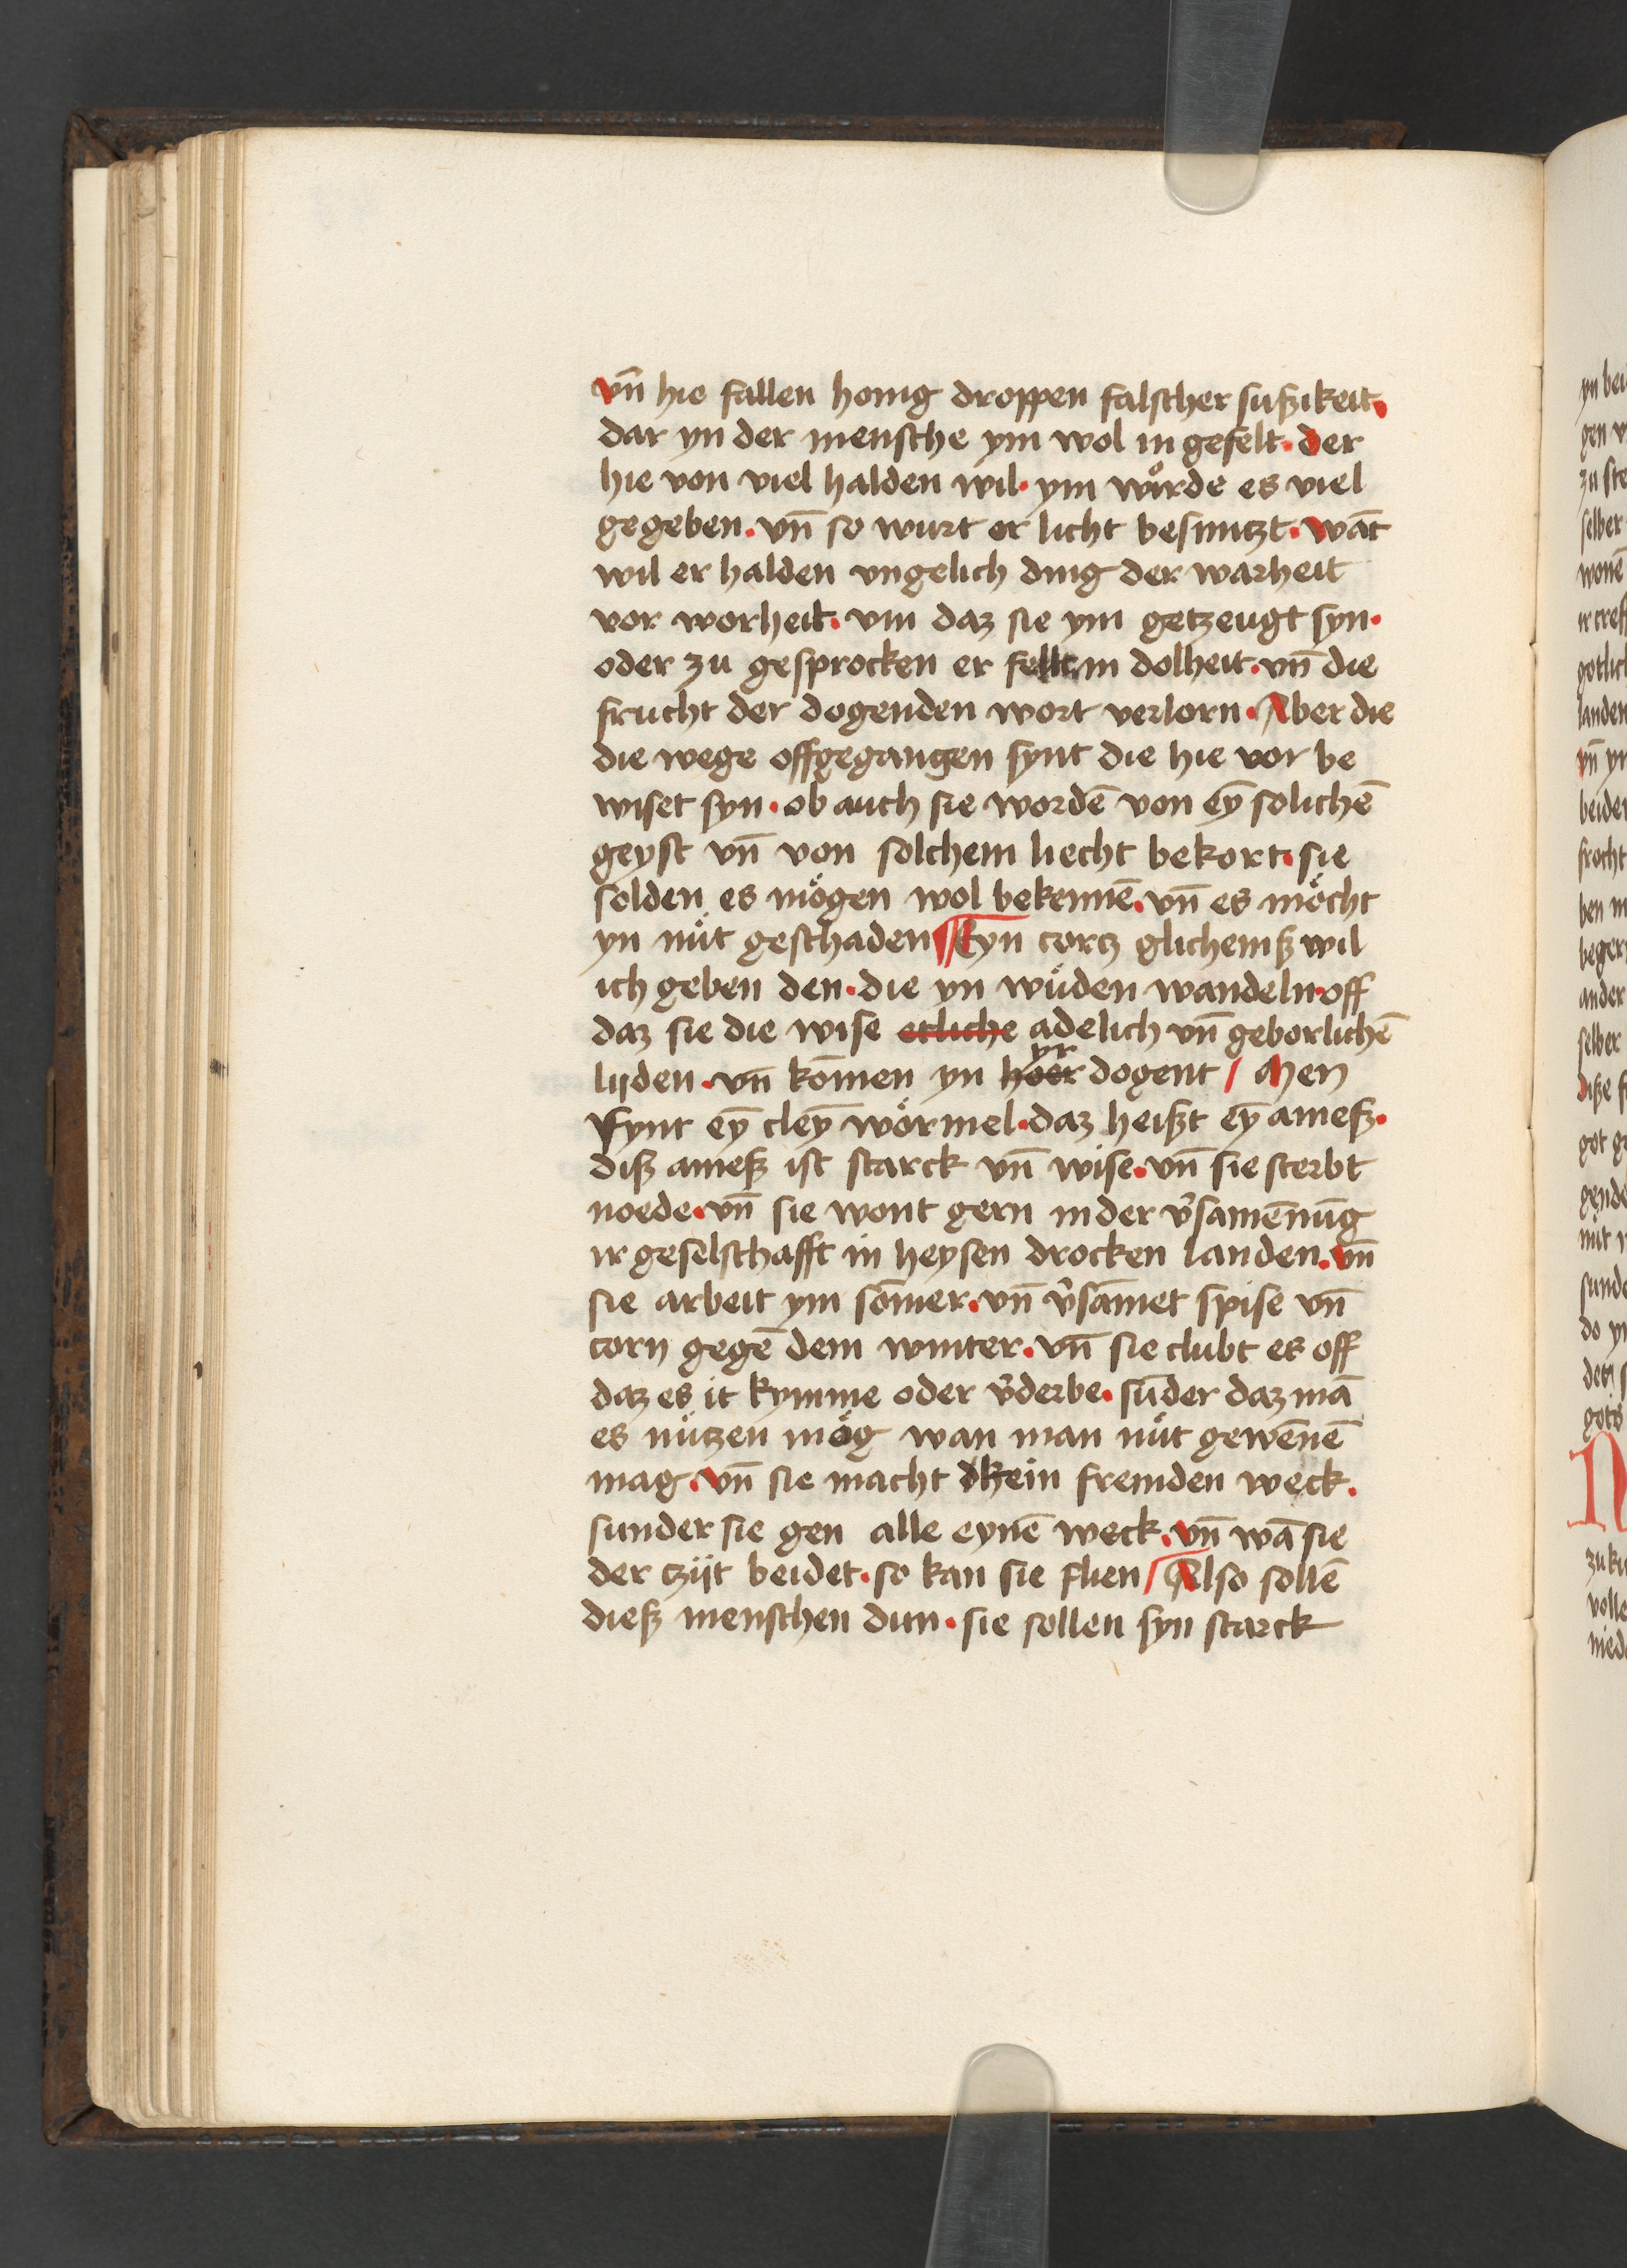 vn̄ hie fallen honig droppen falscher sußikeit.
dar yn der mensche ym wol in gefelt. der
hie von viel halden wil. ym wůrde es viel
gegeben. vn̄ so wurt er licht besmitzt. wāt
wil er halden vngelich ding der warheit
vor worheit. vm daz sie ym getzeugt syn.
oder zu gesprocken er fellt in dolheit. vn̄ die
frucht der dogenden wort verlorn. Aber die
die wege offgegangen synt die hie vor be
wiset syn. ob auch sie wordē von eȳ solichē
geyst vn̄ von solchem liecht bekort. sie
solden es mögen wol bekennē. vn̄ es möcht
yn nüt geschaden Eyn cortz glichemß wil
ich geben den. die yn wüden wandeln. off
daz sie die wise etliche adelich vn̄ geborlichē
lijden. vn̄ kōmen yn hoer yr dogent / Men
fynt eȳ cleȳ wörmel. daz heißt eȳ ameß.
diß ameß ist starck vn̄ wise. vn̄ sie sterbt
noede. vn̄ sie wont gern in der v̄samēnūg
ir geselschafft in heysen drocken landen. vn̄
sie arbeit ym sōmer. vn̄ v̄sāmet spise vn̄
corn gegē dem winter. vn̄ sie clubt es off
daz es it kymme oder v̄derbe. sūder daz mā
es nützen mög wan man nüt gewēnē
mag. vn̄ sie macht dkein fremden weck.
sunder sie gen alle eynē weck. vn̄ wā sie
der tzijt beidet. so kan sie flien / Also sollē
dieß menschen dun. sie sollen syn starck